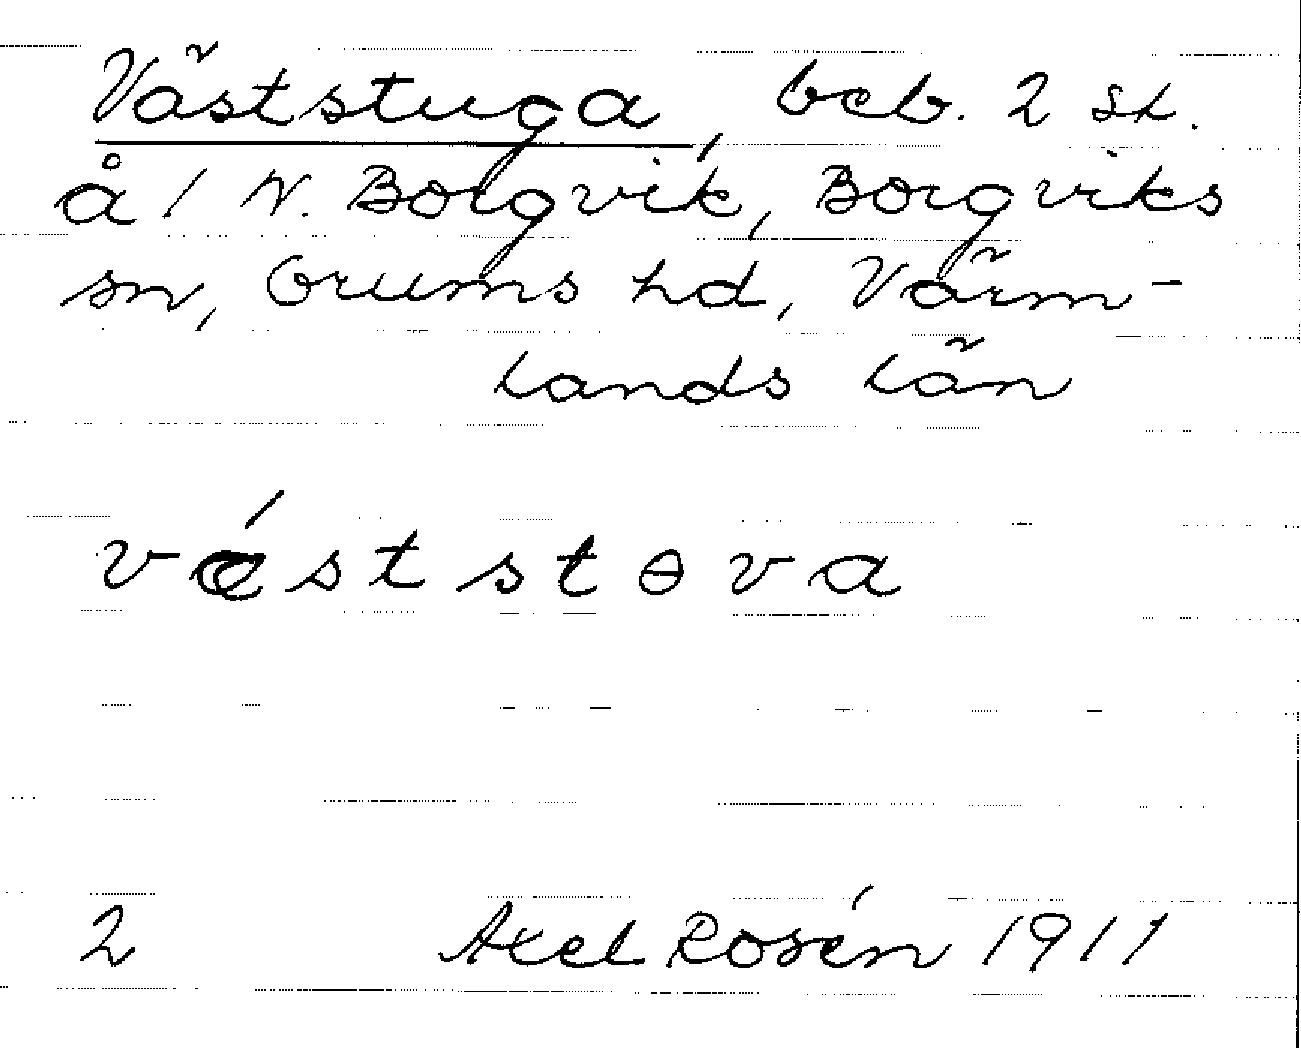 Väststuga, beb. 2 st.
å 1 N. Borgvik, Borgviks
sn, Grums hd, Värm-
lands län
vǽststɵva
2 Axel Rosén 1911